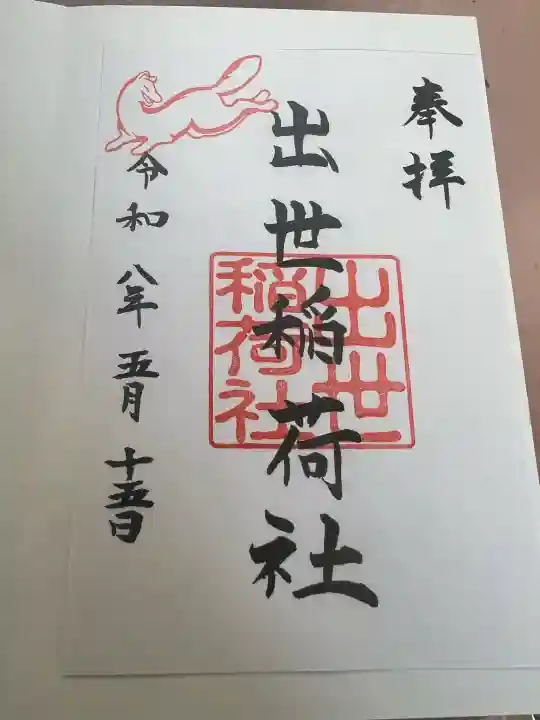 奉拝
出世稲荷社
出世
稲荷社
令和八年五月十五日